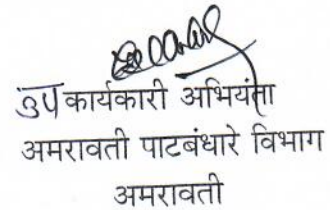 उप कार्यकारी अभियंता
अमरावती पाटबंधारे विभाग
अमरावती